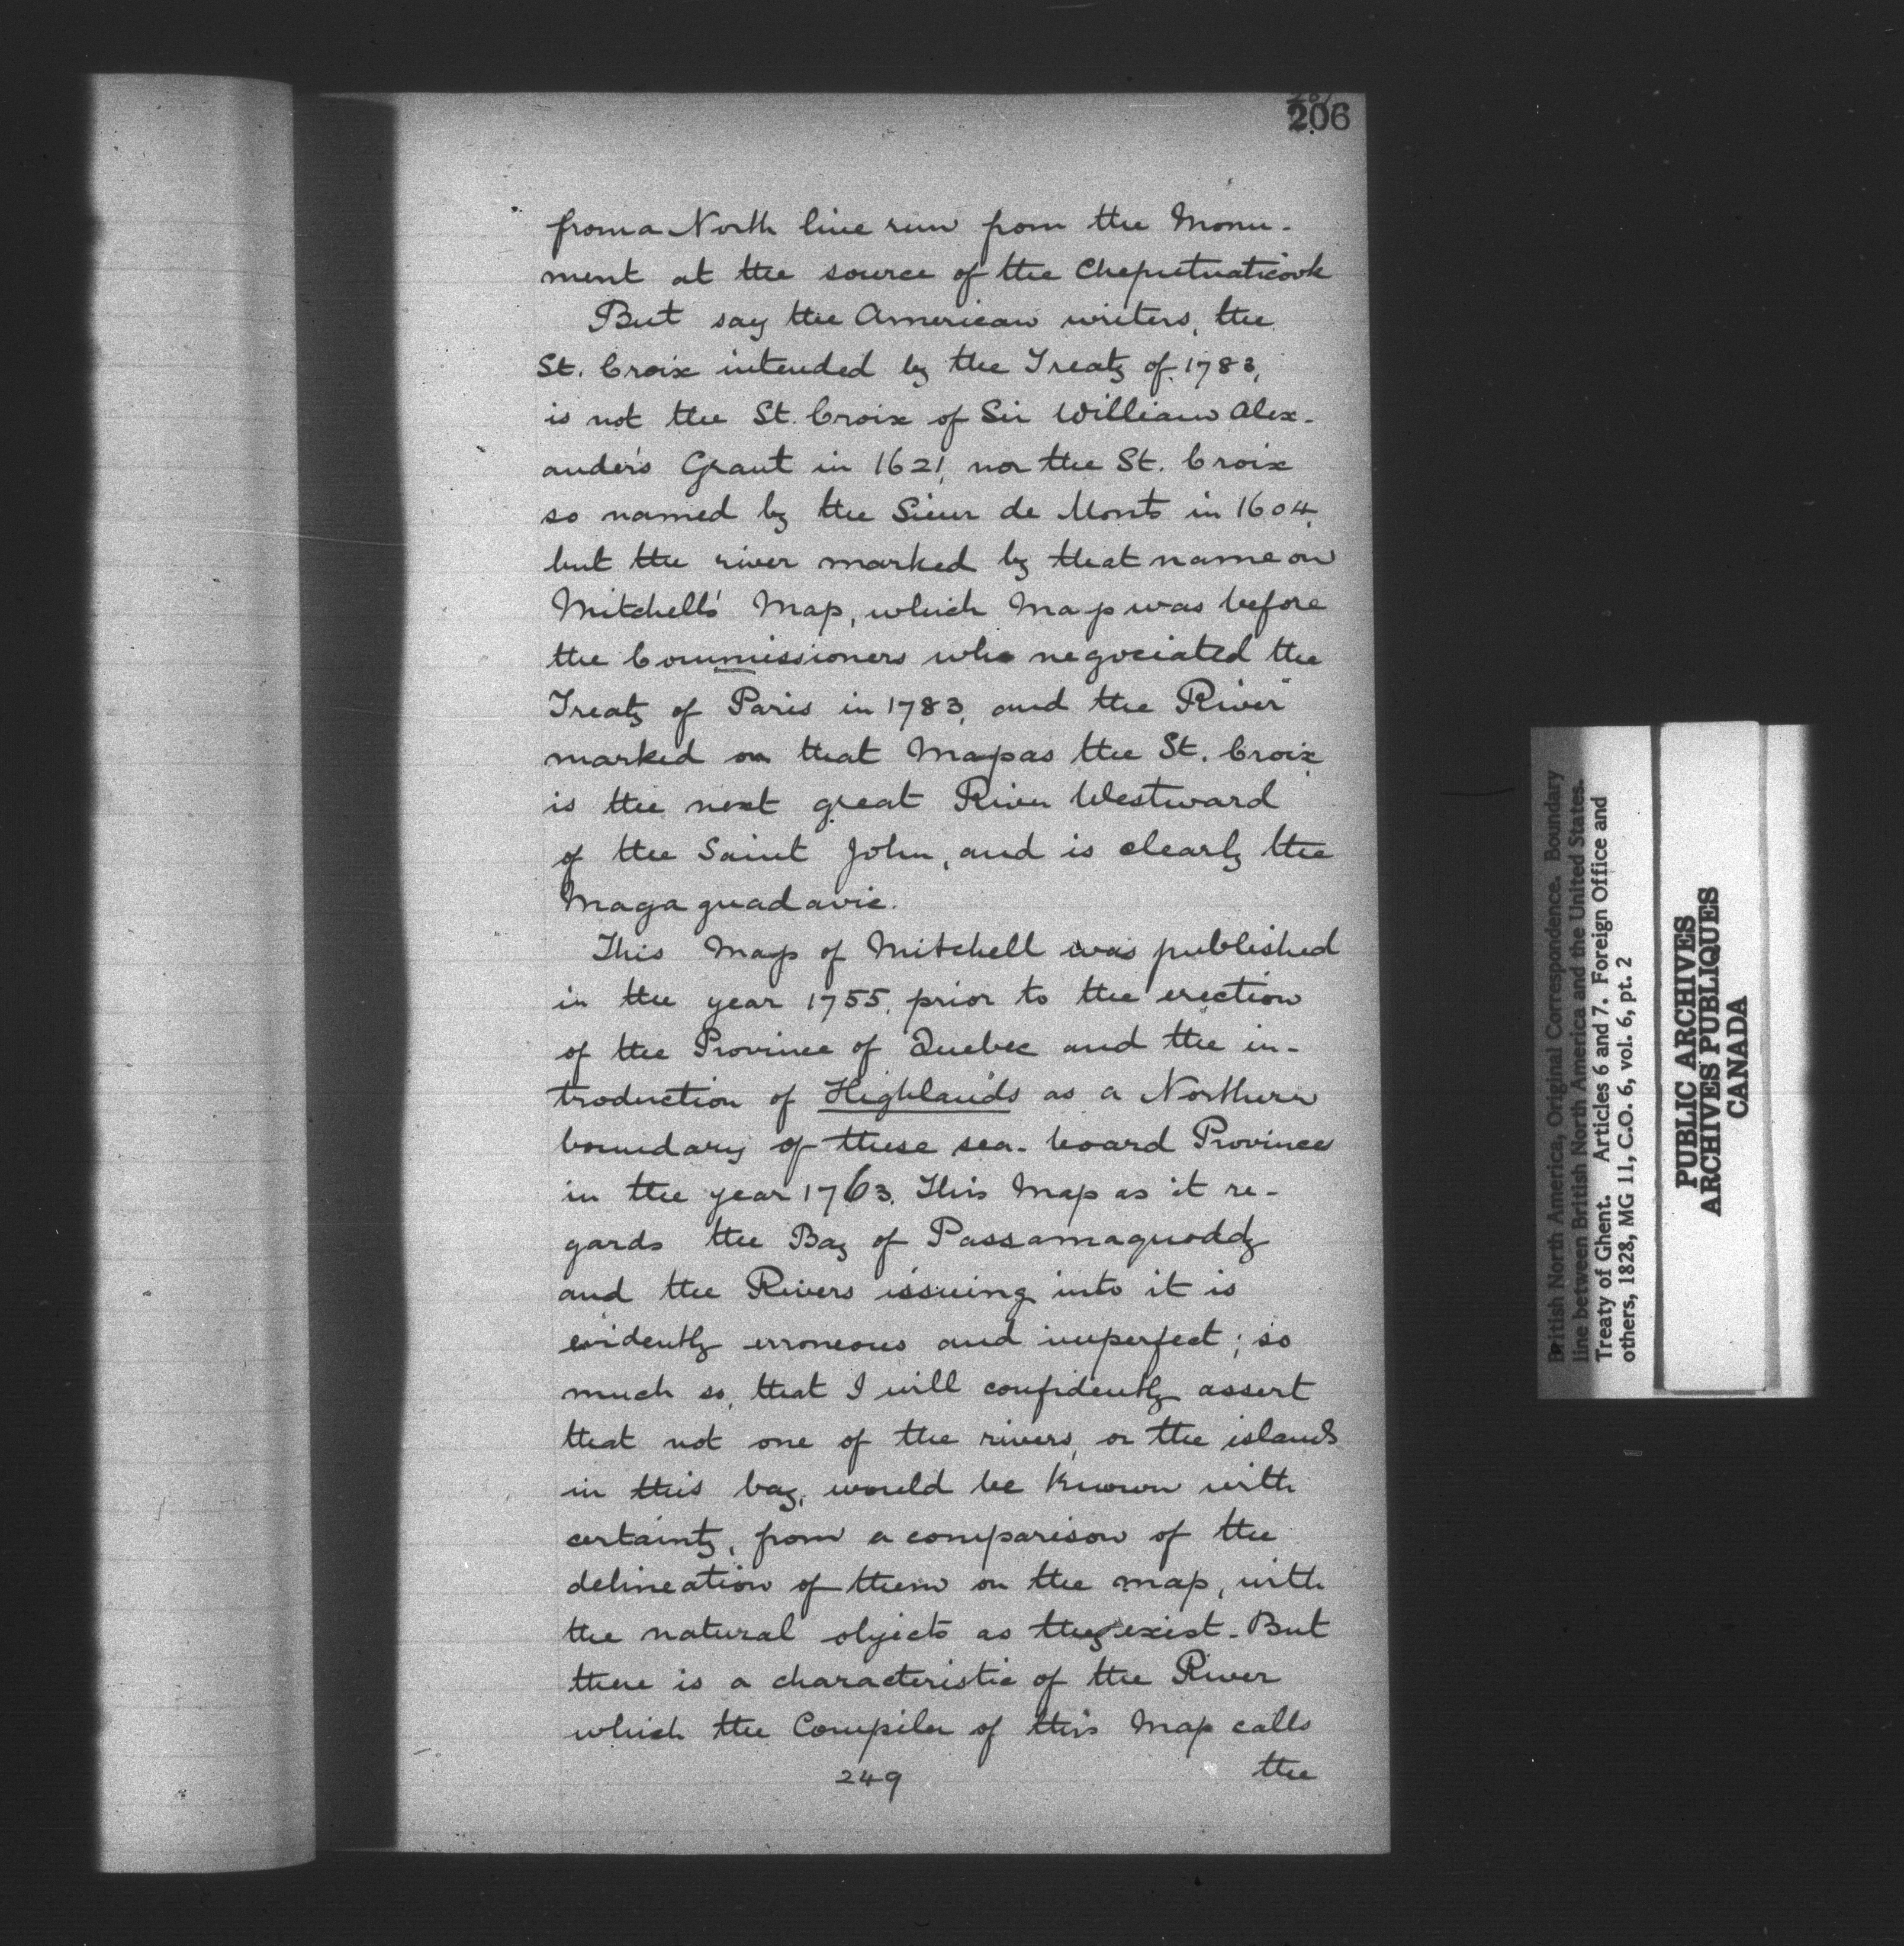 206
from a North line run from the Monu-
ment at the source of the Cheputnaticook
But say the American writers, the
St. Croix intended by the Treaty of 1783,
is not the St. Croix of Sir William Alex-
ander's Grant in 1621, nor the St. Croix
so named by the Sieur de Monts in 1604,
but the river marked by that name on
Mitchell's Map, which Map was before
the Commissioners who negociated the
Treaty of Paris in 1783, and the River
marked on that Map as the St. Croix
is the next great River Westward
of the Saint John, and is clearly the
Magaguadavic.
This Map of Mitchell was published
in the year 1755, prior to the erection
of the Province of Quebec and the in-
troduction of Highlands as a Northern
boundary of these sea-board Provinces
in the year 1763. This Map as it re-
gards the Bay of Passamaquoddy
and the Rivers issuing into it is
evidently erroneous and imperfect; so
much so, that I will confidently assert
that not one of the rivers, or the islands
in this bay, would be known with
certainty, from a comparison of the
delineation of them on the map, with
the natural objects as they exist. But
there is a characteristic of the River
which the Compiler of this Map calls
the
249
British North America, Original Correspondence. Boundary
line between British North America and the United States.
Treaty of Ghent. Articles 6 and 7. Foreign Office and
others, 1828, MG 11, C.O. 6, vol. 6, pt. 2
PUBLIC ARCHIVES
ARCHIVES PUBLIQUES
CANADA